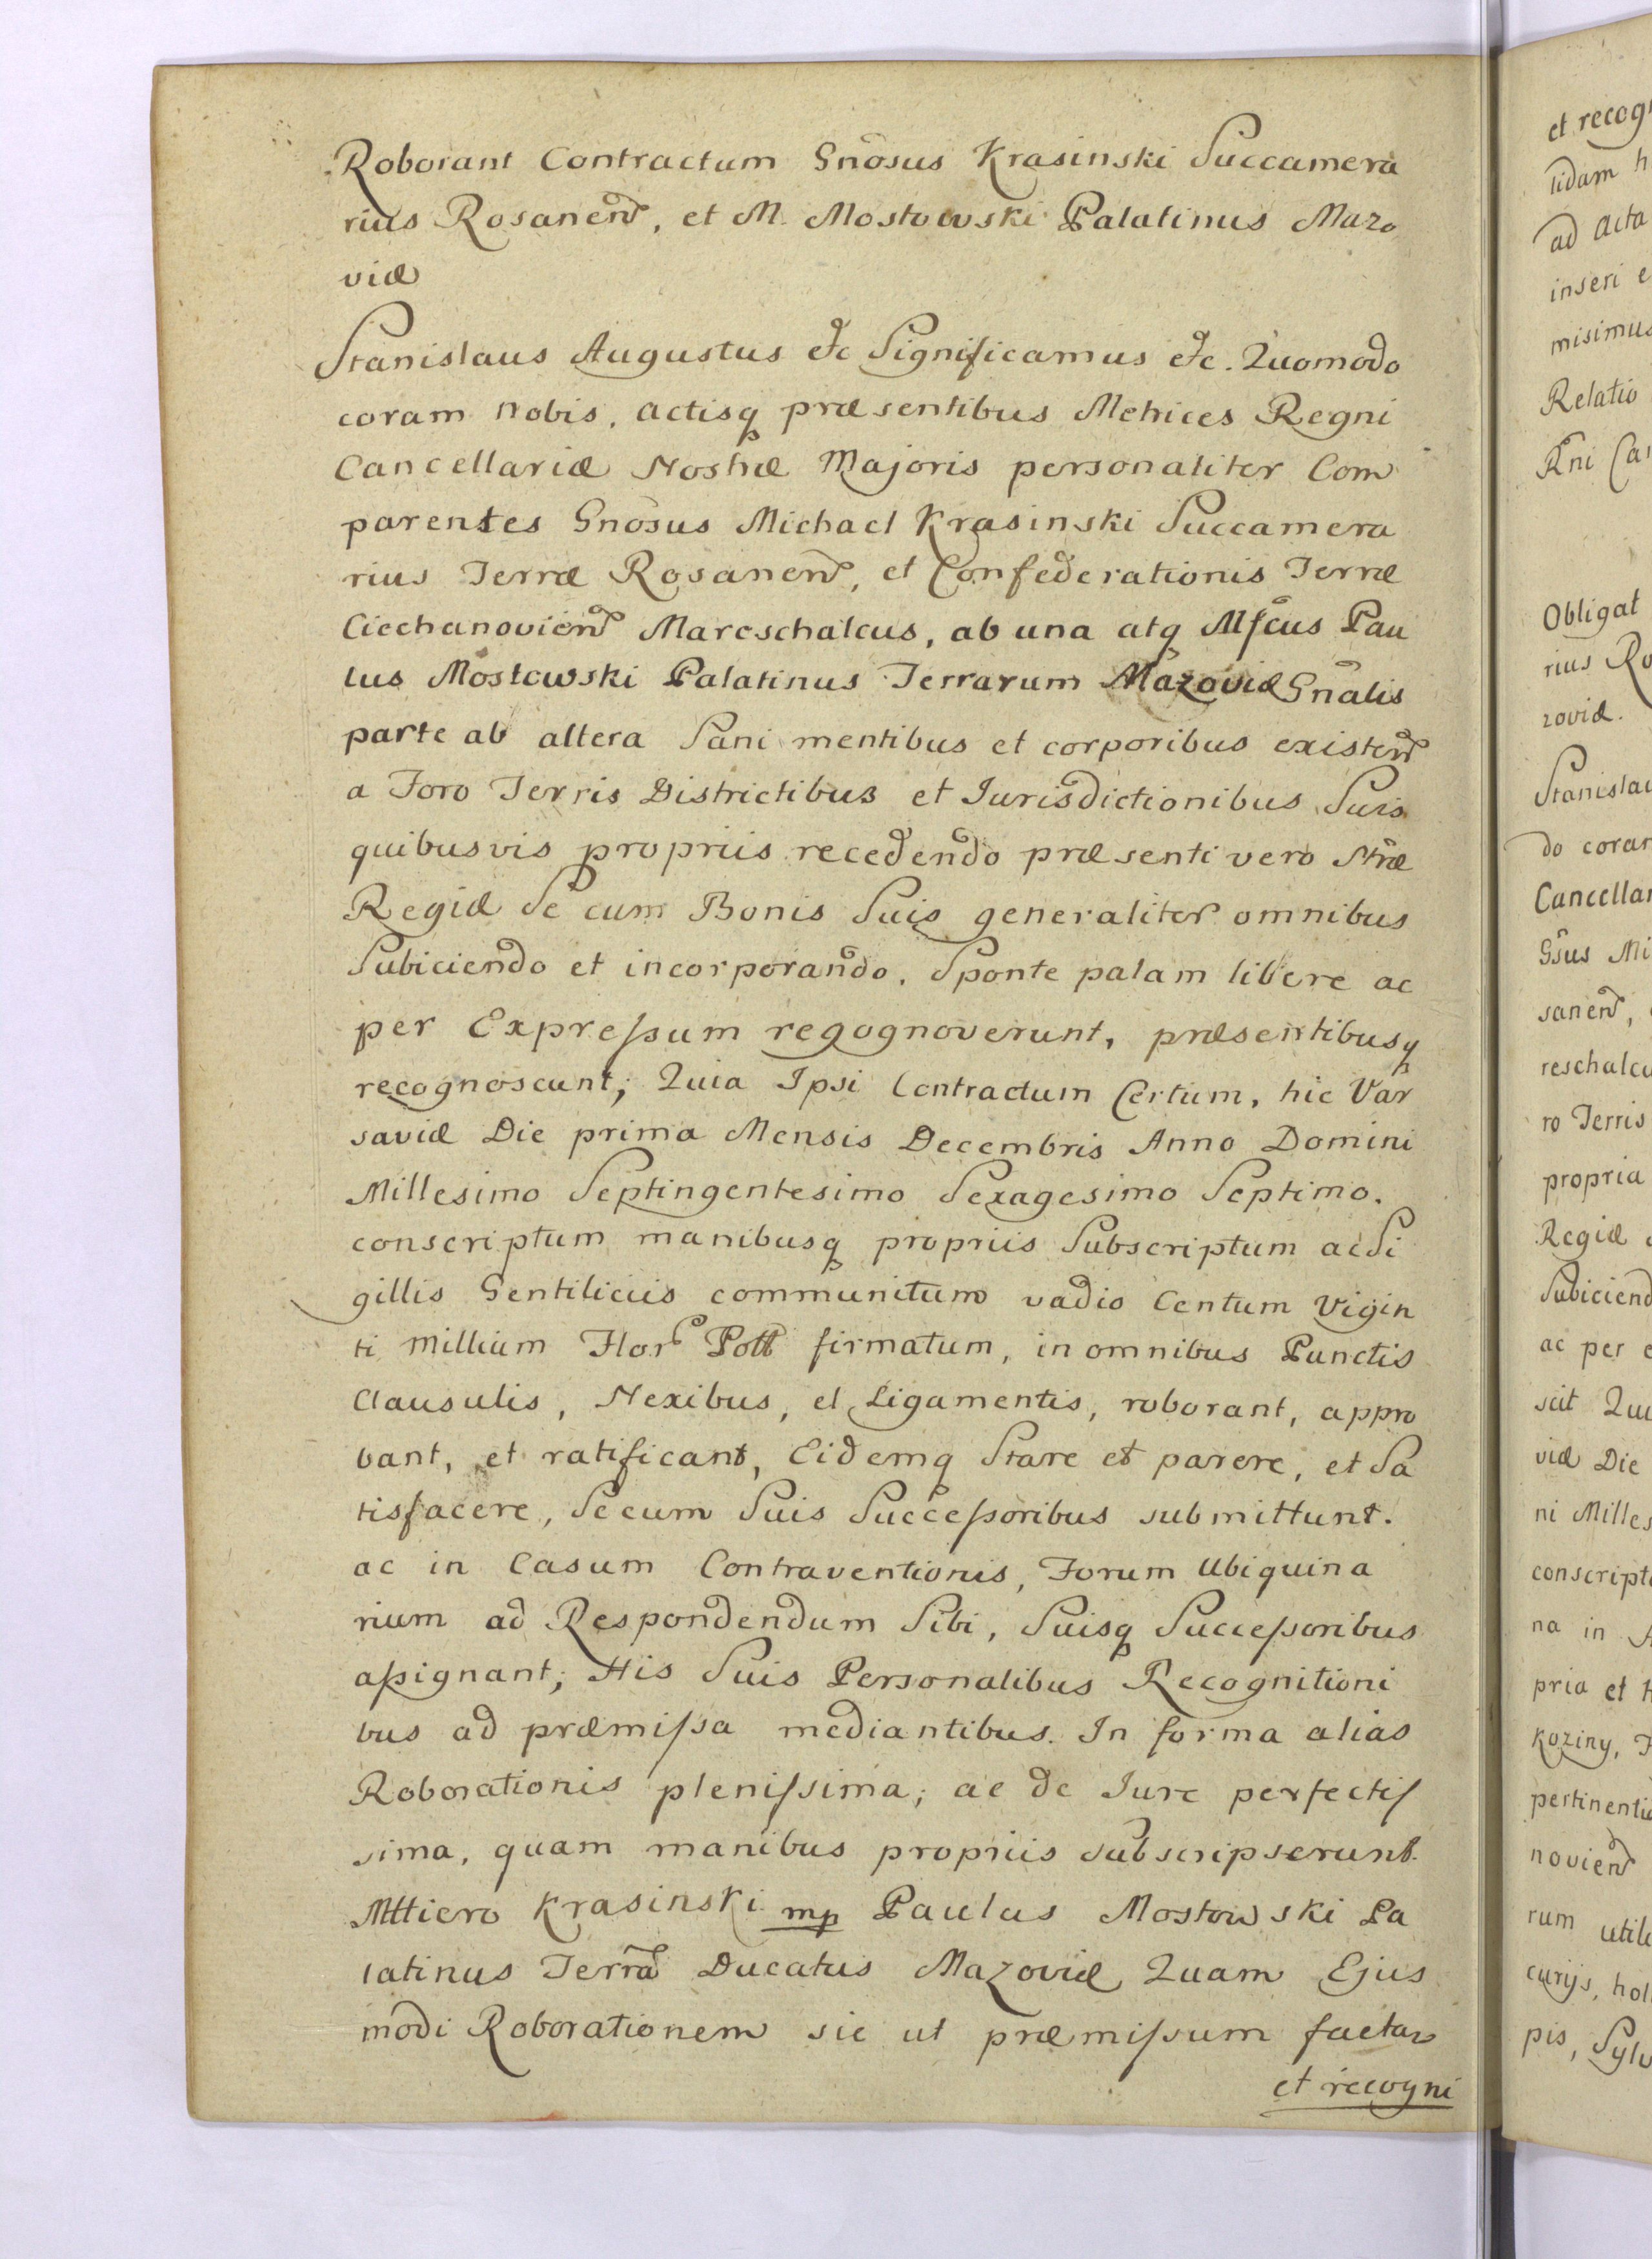 Roborant Contractum Gnõsus Krasinski Succamera
rius Rosanen, et M. Mostowski Palatinus Mazo
viæ
Stanislaus Augustus etc Significamus etc. Quomodo
coram nobis, actisq præsentibus Metrices Regni
Cancellariæ Nostræ Majoris personaliter Com
parentes Gnõsus Michael Krasinski Succamera
rius Terræ Rosanen, et Confederationis Terræ
Ciechanovien Mareschalcus, ab una atq Mfcus Pau
lus Mostowski Palatinus Terrarum Mazoviæ Gnalis
parte ab altera Sani mentibus et corporibus existen
a Foro Terris Districtibus et Iurisdictionibus Suis
quibusvis propriis recedendo præsenti vero Stræ
Regiæ Se cum Bonis Suis generaliter omnibus
Subiciendo et incorporando. Sponte palam libere ac
per Expreſsum regognoverunt, præsentibusq
recognoscunt; Quia Ipsi Contractum Certum, hic Var
saviæ Die prima Mensis Decembris Anno Domini
Millesimo Septingentesimo Sexagesimo Septimo.
conscriptum manibusq propriis Subscriptum ac Si
gillis Gentiliciis communitum vadio Centum Vigin
ti Millium Flor Poll firmatum, in omnibus Punctis
Clausulis, Nexibus, et Ligamentis, roborant, appro
bant, et ratificant, Eidemq Stare et parere, et Sa
tisfacere, Se cum Suis Succeſsoribus submittunt.
ac in Casum Contraventionis, Forum Ubiquina
rium ad Respondendum Sibi, Suisq Succeſsoribus
aſsignant; His Suis Personalibus Recognitioni
bus ad præmiſsa mediantibus. In forma alias
Roborationis pleniſsima; ac de Iure perfectiſ
sima, quam manibus propriis subscripserunt.
Krasinski mp Paulus Mostowski Pa
latinus Terra Ducatus Mazoviæ Quam Ejus
modi Roborationem sic ut præmiſsum factam
et recogni
et recog
tidam h
ad Acta
inseri e
misimus
Relatio
Rni Ca
Obligat
rius Ro
zoviæ.
Stanislau
do coram
Cancellar
Gsus Mi
sanen,
reschalcu
ro Terris
propria
Regiæ
Subiciend
ac per e
scit Qui
viæ Die
ni Milles
conscripto
na in
pria et
Koziny,
pertinentii
novien
rum utile
curijs, hol
pis, Sylv